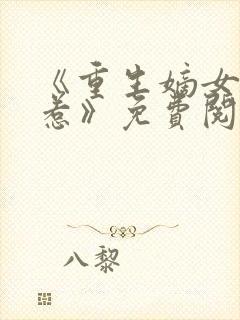 《重生嫡女
惹》免費閱
八黎